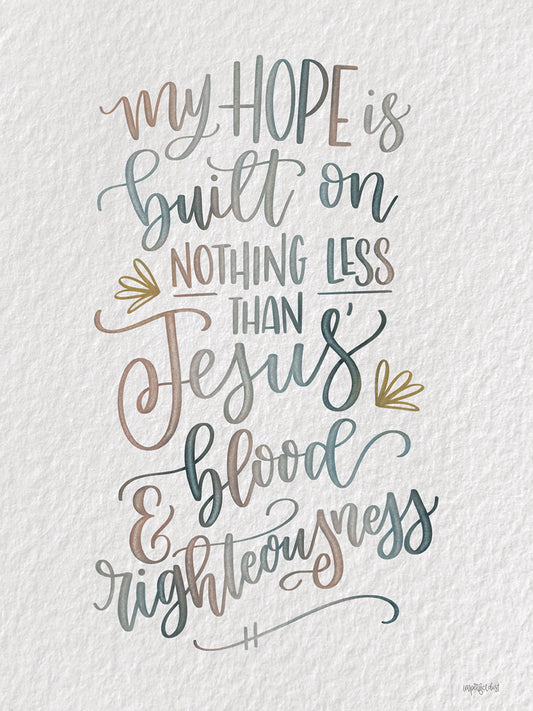 my HOPE is
built on
NOTHING LESS
THAN
Jesus'
blood
&
righteousness